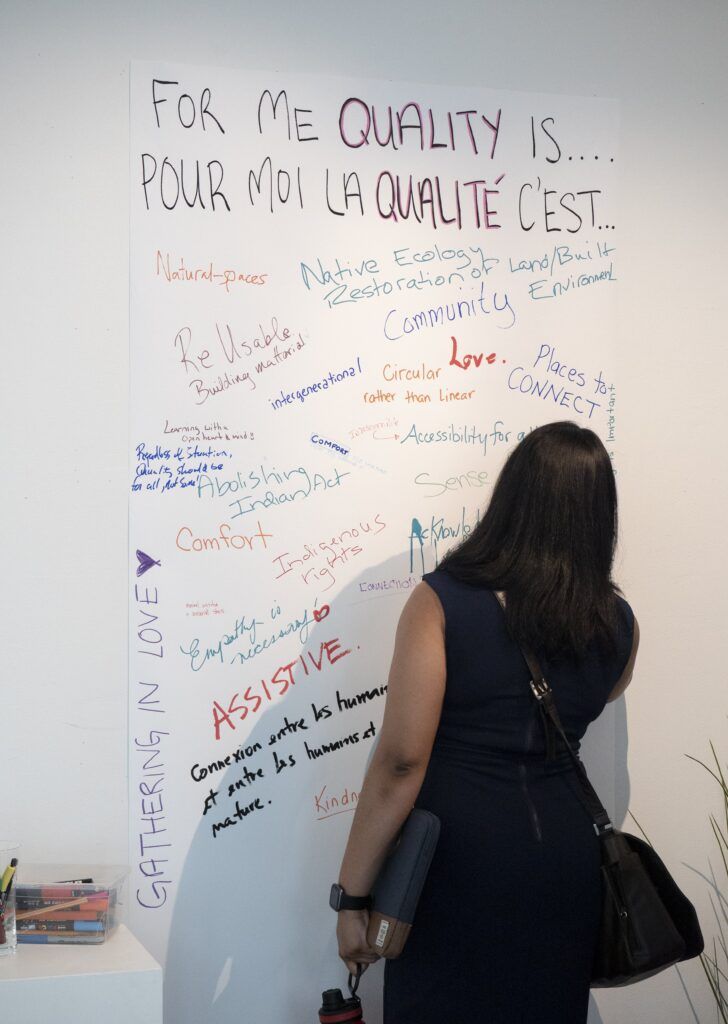 FOR ME QUALITY IS....
POUR MOI LA QUALITÉ C'EST...
Natural-spaces
Native Ecology
Restoration of Land/Built
Environment
Community
ReUsable
Building matterial
intergenerational
Circular
rather than Linear
Love.
Places to
CONNECT
Learning with a
open heart & mind
Regardless of situation,
Quality should be
for all, not some!
COMFORT
Accessibility for
Important
Abolishing
Indian Act
Sense
Comfort
Indigenous
rights
CONNECTION
Empathy is
necessary!
ASSISTIVE.
Connexion entre les humains
et entre les humains et
nature.
GATHERING IN LOVE